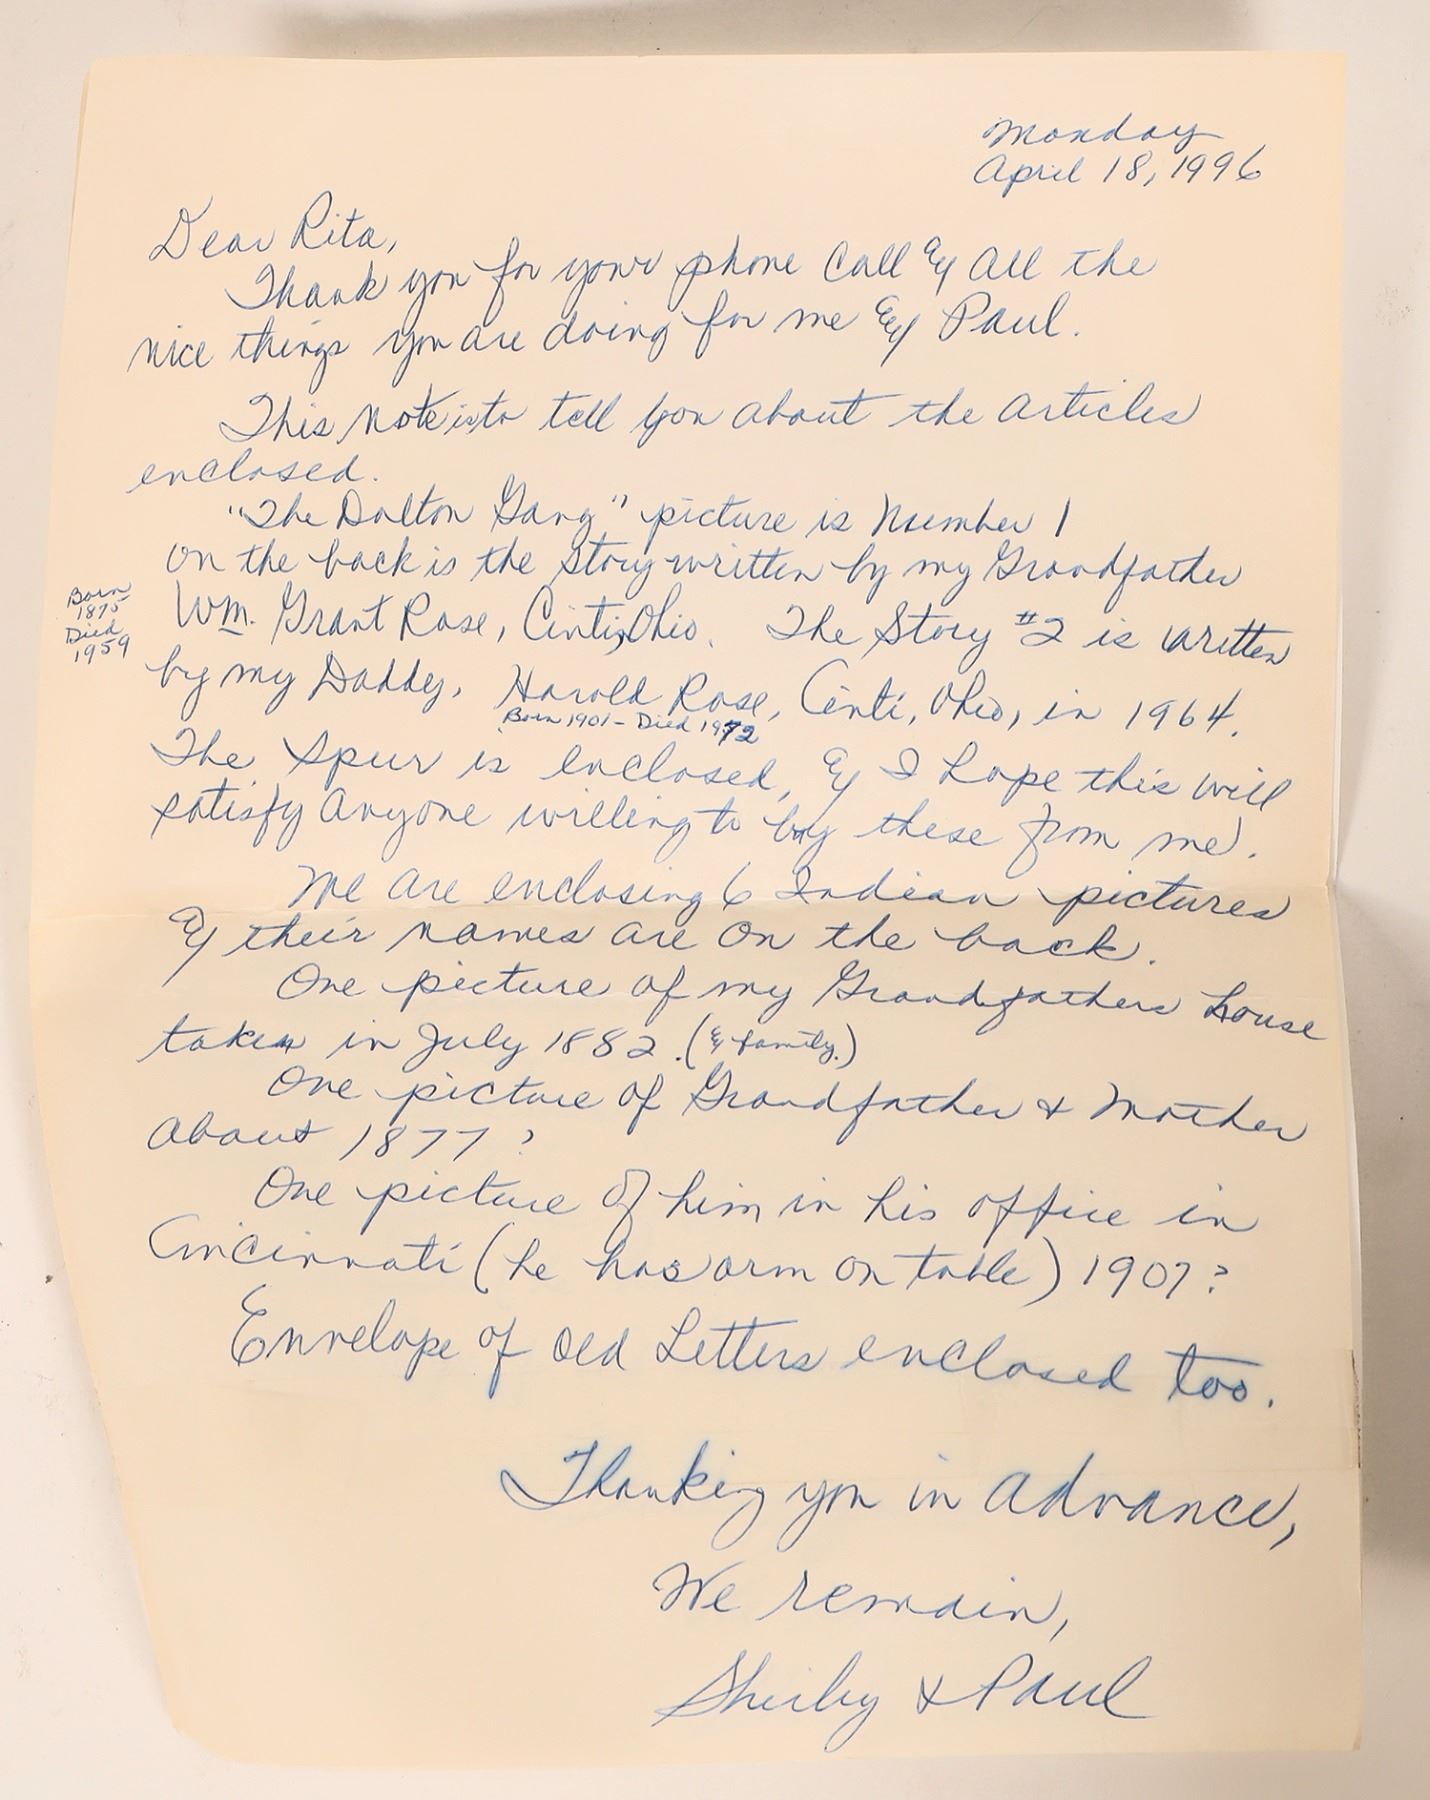 Monday
April 18, 1996
Dear Rita,
Thank you for your phone call & all the
nice things you are doing for me & Paul.
This note is to tell you about the articles
enclosed.
"The Dalton Gang" picture is Number 1
on the back is the story written by my Grandfather
Born
1875
Died
1959
Wm. Grant Rose, Cinti, Ohio. The Story #2 is written
by my Daddy, Harold Rose, Cinti, Ohio, in 1964.
Born 1901 - Died 1972
The Spur is enclosed, & I hope this will
satisfy anyone willing to buy these from me.
We are enclosing 6 Indian pictures
& their names are on the back.
One picture of my Grandfathers house
taken in July 1882. (& family.)
One picture of Grandfather & Mother
about 1877?
One picture of him in his office in
Cincinnati (he has arm on table) 1907?
Envelope of old Letters enclosed too.
Thanking you in advance,
We remain,
Shirley & Paul